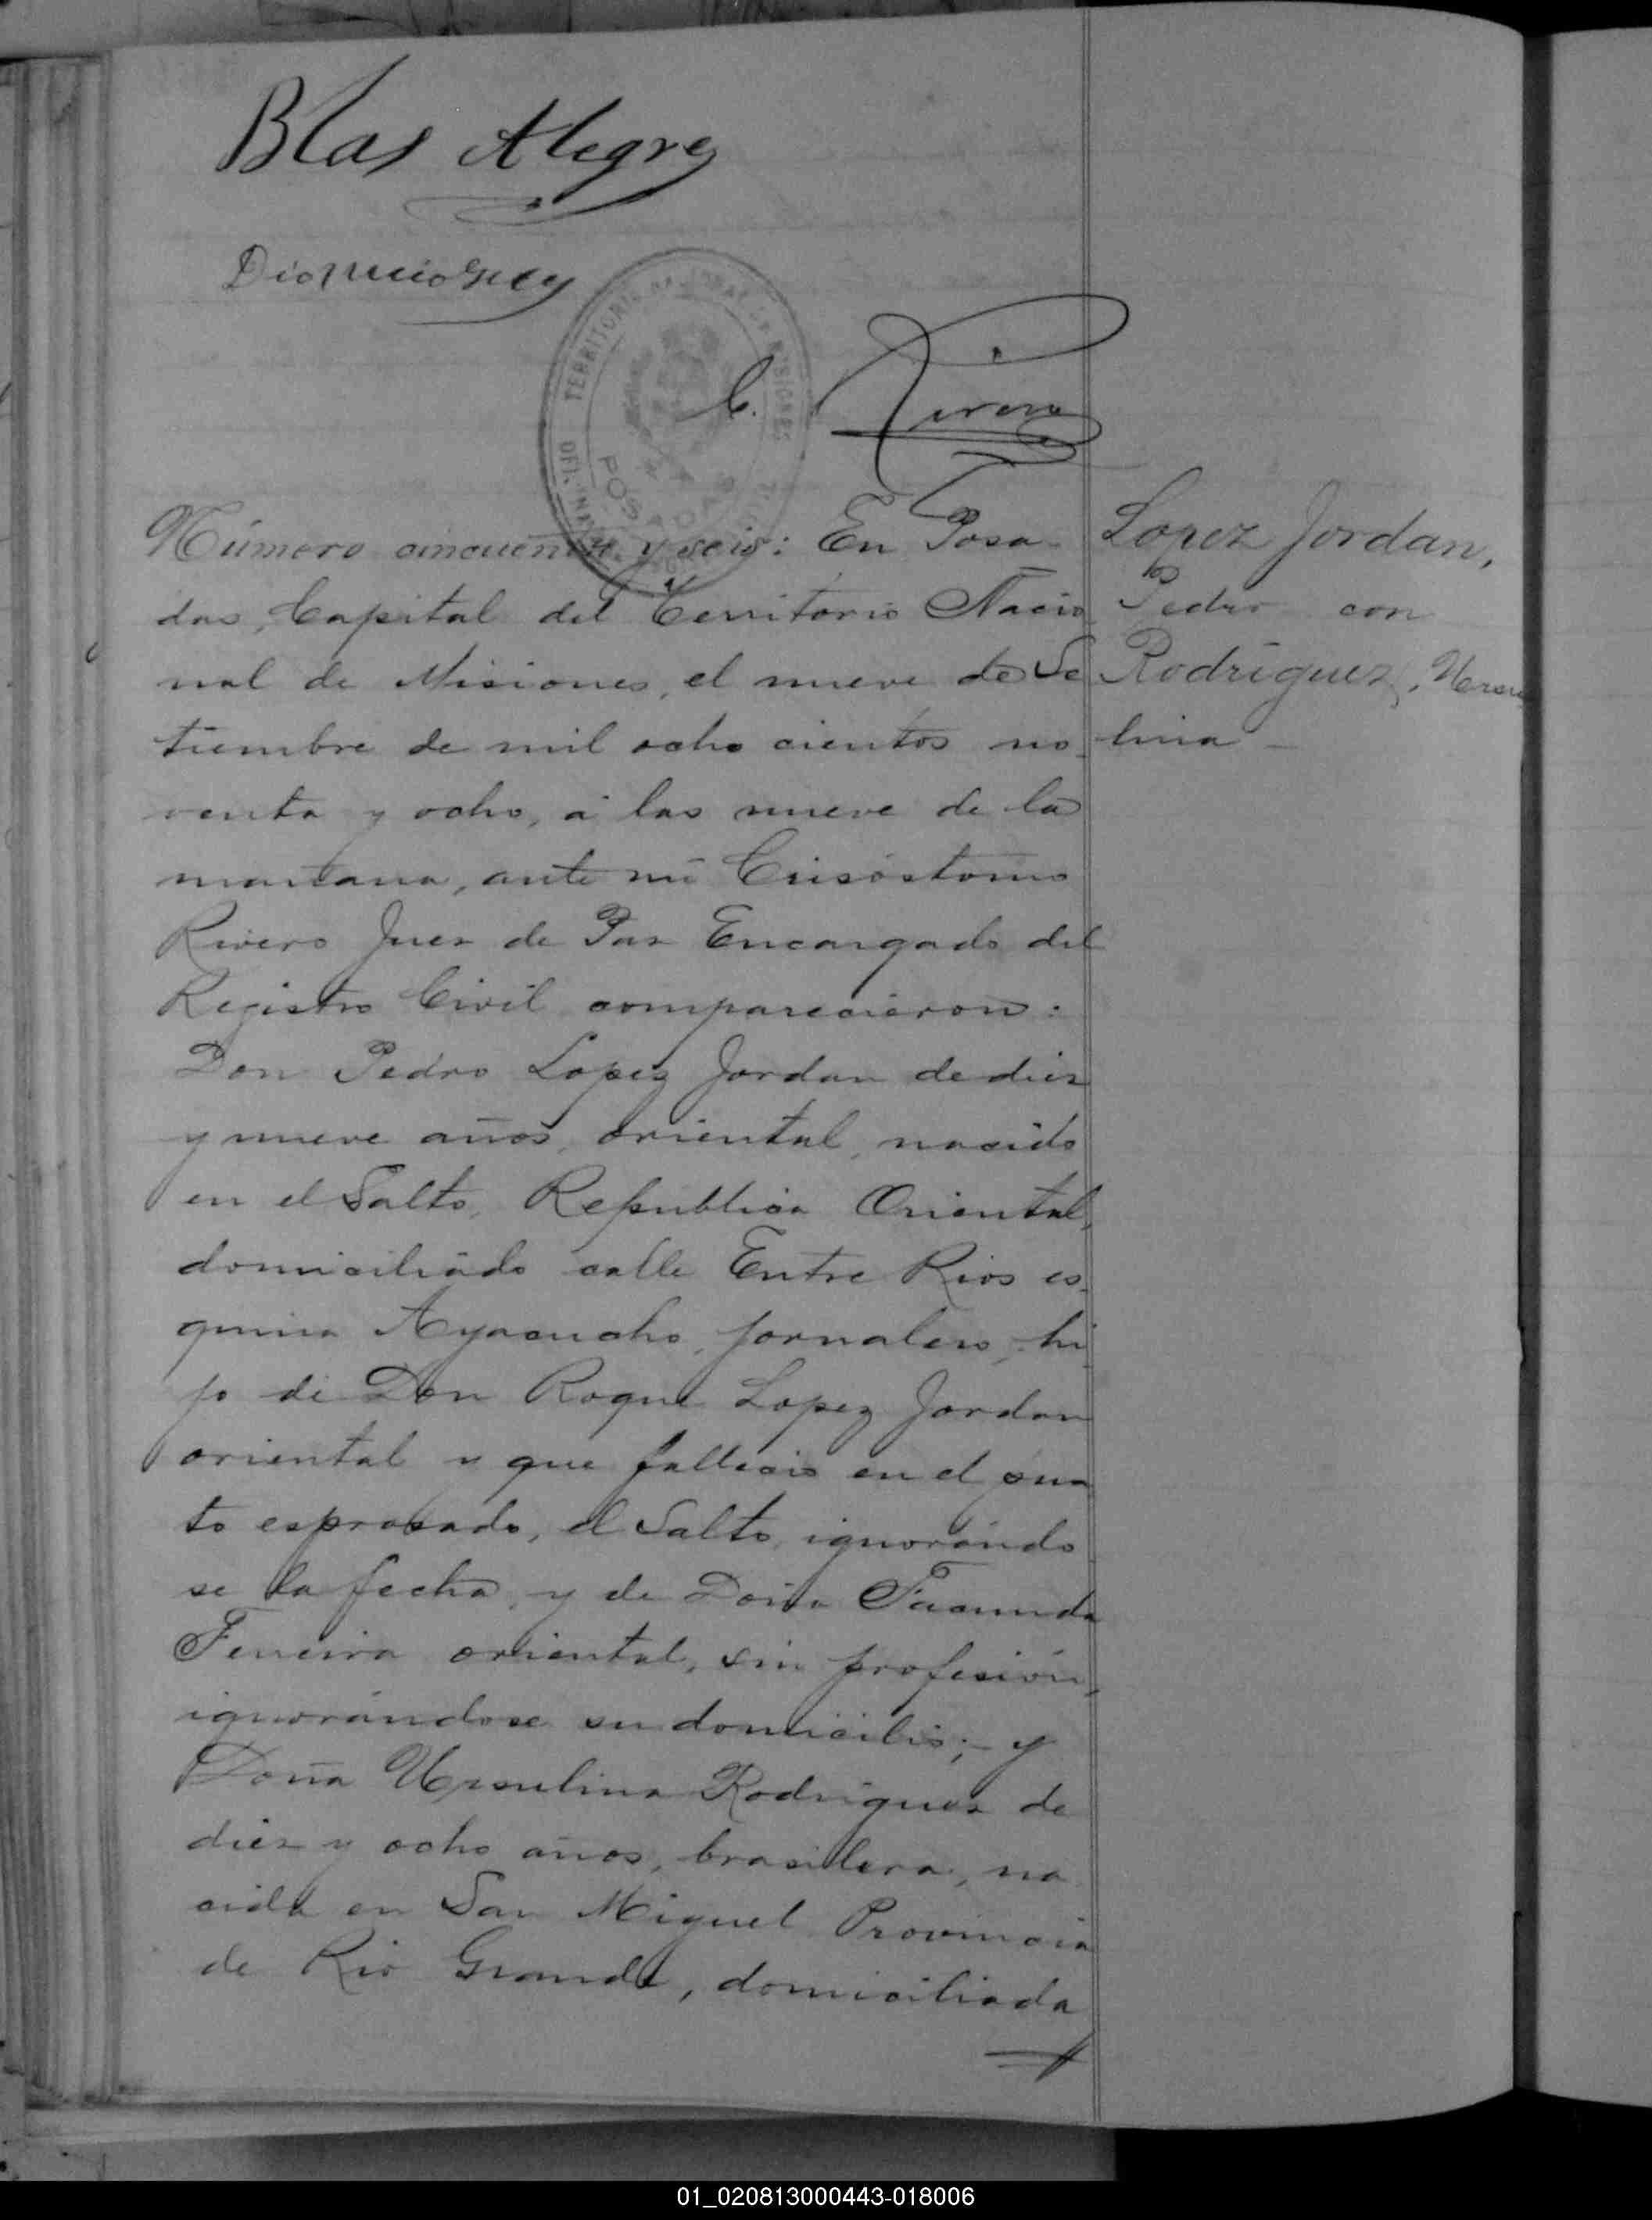 Blas Alegre
C. Rivero
TERRITORIO NACIONAL DE MISIONES
POSADAS
Número cincuenta y seis: En Posa
das, Capital del Territorio Nacio
nal de Misiones, el nueve de Se
tiembre de mil ocho cientos no
venta y ocho, á las nueve de la
mañana, ante mi Crisóstomo
Rivero Juez de Paz Encargado del
Registro Civil comparecieron:
Don Pedro Lopez Jordan de diez
y nueve años, oriental, nacido
en el Salto, Republica Oriental,
domiciliado calle Entre Rios es
quina Ayacucho, jornalero, hi
jo de Don Roque Lopez Jordan
oriental y que falleció en el pun
to espresado, el Salto, ignorándo
se la fecha, y de Doña Facunda
Ferreira oriental, sin profesión,
ignorándose su domicilio; - y
Doña Ursulina Rodriguez de
diez y ocho años, brasilera, na
cida en San Miguel Provincia
de Rio Grande, domiciliada
Lopez Jordan,
Pedro con
Rodriguez, Ursu
lina -
01_020813000443-018006